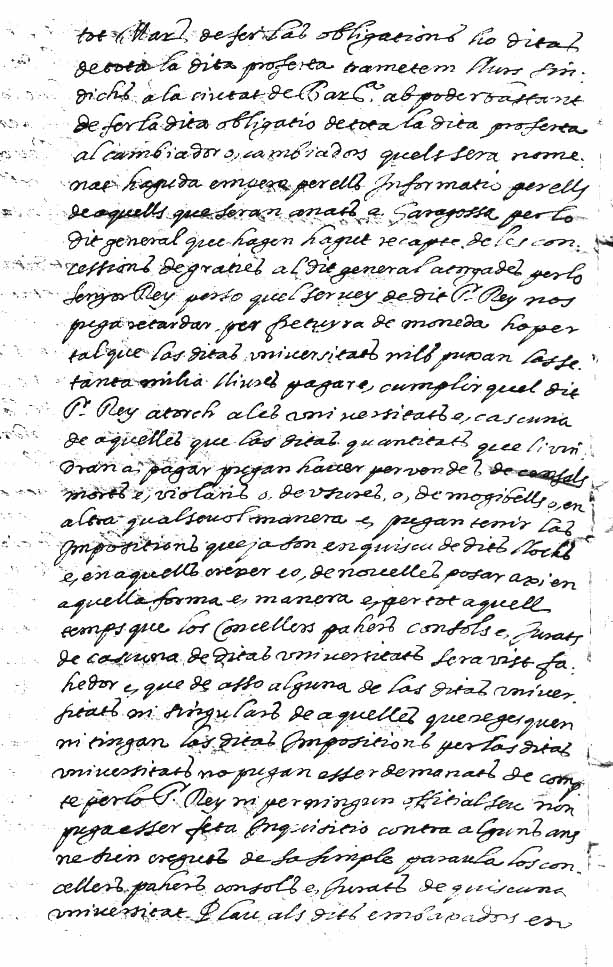 tot Mars de fer las obligations ho ditas
de tota la dita proferta trametem llurs sin-
dichs a la ciutat de Barna. ab poder bastant
de fer la dita obligatio de tota la dita proferta
al cambiador o, cambiadors quels sera nome-
nat haguda empero per ells Informatio per ells
de aquells que seran anats a Saragossa per lo
dit general que hagen hagut recapte de les con-
cessions de graties al dit general atorgades per lo
senyor Rey perso quel servey de dit Sr. Rey nos
puga retardar per fretura de moneda ho per
tal que las ditas universitats nills puxan las se-
tanta milia lliures pagar e, cumplir quel dit
Sr. Rey atorch a les universitats e, cascuna
de aquelles que las ditas quantitats que li vin-
dran a pagar pugan haver per vendes de censals
morts e, violaris o, de usures, o, de mogibells o, en
altra qualsevol manera e, pugan tenir las
Impositions que ja son en quiscu de dits llochs
e, en aquells crexer e o, de novelles posar axi en
aquella forma e, manera e, per tot aquell
temps que los Concellers pahers consols e, Jurats
de cascuna de ditas universitats sera vist fa-
hedor e, que de asso alguna de las ditas univer-
sitats ni singulars de aquelles que regesquen
ni tingan las ditas Impositions per las ditas
universitats no pugan esser demanats de comp-
te per lo Sr. Rey ni per ningun offitial seu non
puga esser feta Inquisitio contra alguns ans
ne sien creguts de sa simple paraula los con-
cellers pahers consols e, Jurats de quiscuna
universitat Plau als dits embaxadors en